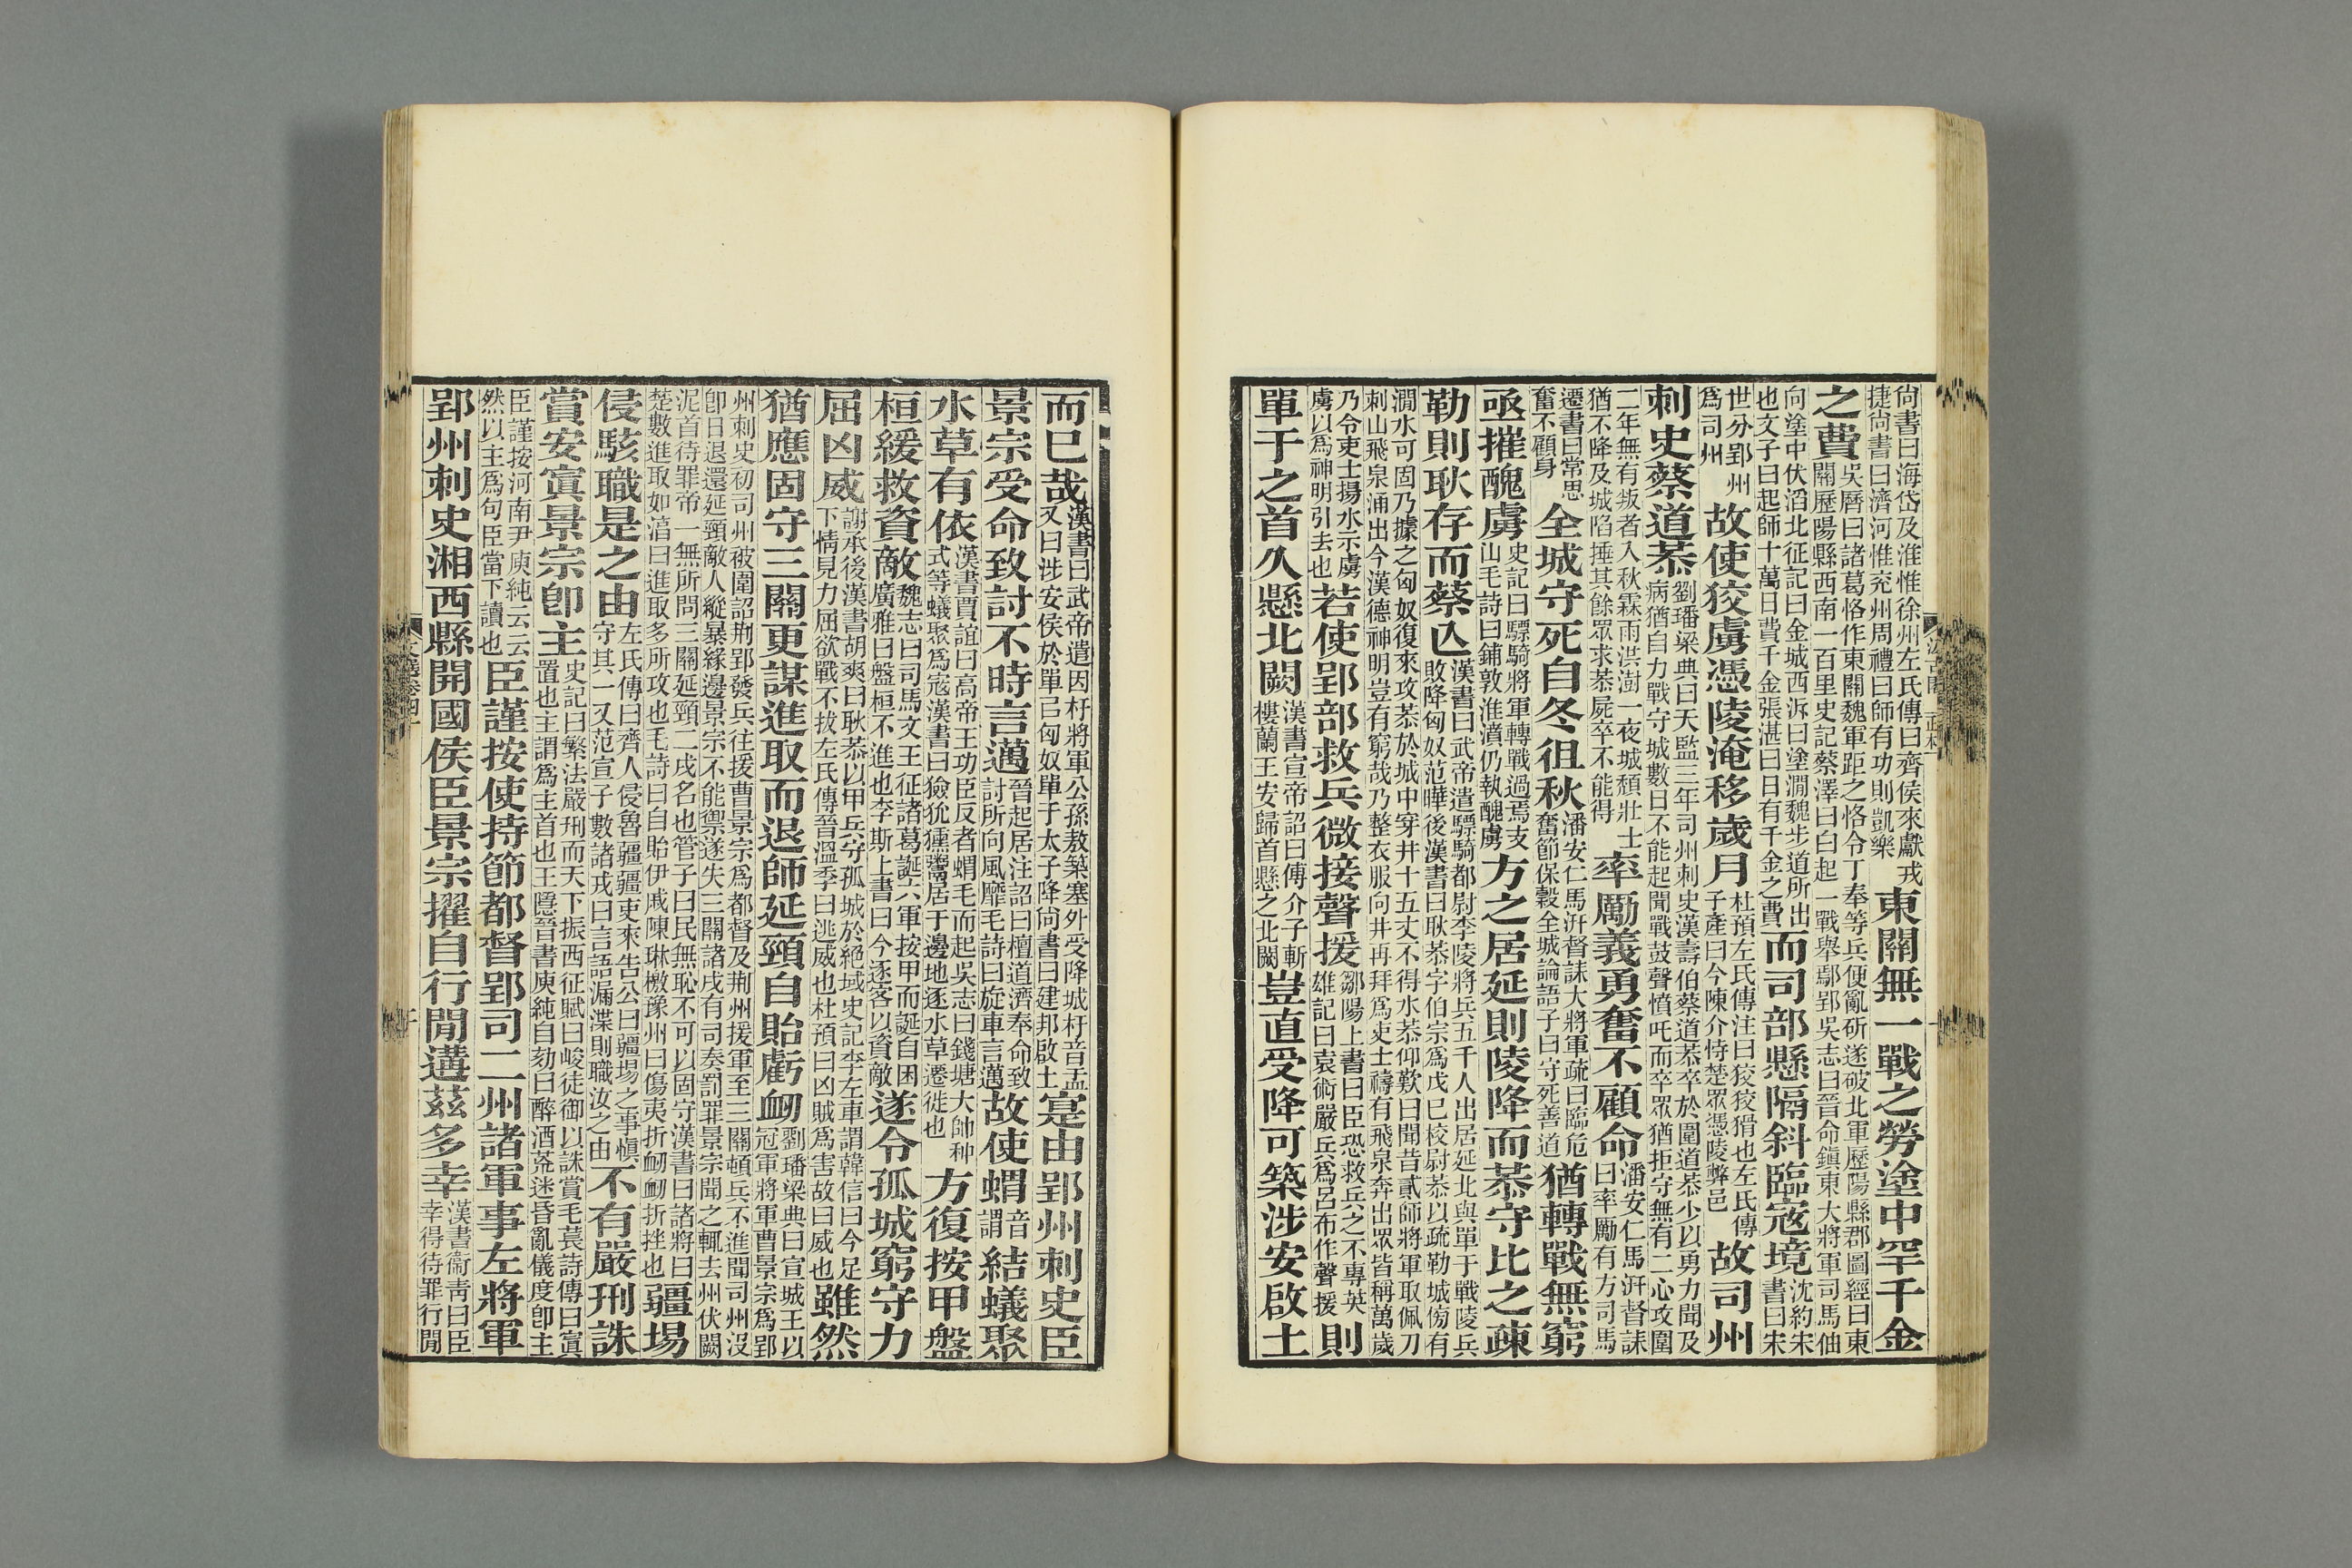 尙書曰海岱及淮惟徐州左氏傳曰齊侯來獻戎
捷尙書曰濟河惟兖州周禮曰師有功則凱樂
東關無一戰之勞塗中罕千金
之費
吳曆曰諸葛恪作東關魏軍距之恪令丁奉等兵便亂斫遂破北軍歷陽縣郡圖經曰東
關歷陽縣西南一百里史記蔡澤曰白起一戰舉鄢郢吳志曰晉命鎭東大將軍司馬伷
向塗中伏滔北征記曰金城西泝曰塗澗魏步道所出
也文子曰起師十萬日費千金張湛曰日有千金之費
而司部懸隔斜臨寇境
沈約宋
書曰宋
世分郢州
爲司州
故使狡虜憑陵淹移歲月
杜預左氏傳注曰狡狡猾也左氏傳
子產曰今陳介恃楚眾憑陵弊邑
故司州
刺史蔡道恭
劉璠梁典曰天監三年司州刺史漢壽伯蔡道恭卒於圍道恭少以勇力聞及
病猶自力戰守城數日不能起聞戰鼓聲憤吒而卒眾猶拒守無有二心攻圍
二年無有叛者入秋霖雨洪澍一夜城頹壯士
猶不降及城陷捶其餘眾求恭屍卒不能得
率勵義勇奮不顧命
潘安仁馬汧督誄
曰率勵有方司馬
遷書曰常思
奮不顧身
全城守死自冬徂秋
潘安仁馬汧督誄大將軍疏曰臨危
奮節保穀全城論語子曰守死善道
猶轉戰無窮
亟摧醜虜
史記曰驃騎將軍轉戰過焉支
山毛詩曰鋪敦淮濆仍執醜虜
方之居延則陵降而恭守比之疎
勒則耿存而蔡亾
漢書曰武帝遣驃騎都尉李陵將兵五千人出居延北與單于戰陵兵
敗降匈奴范曄後漢書曰耿恭字伯宗爲戊巳校尉恭以疏勒城傍有
澗水可固乃據之匈奴復來攻恭於城中穿井十五丈不得水恭仰歎曰聞昔貳師將軍取佩刀
刺山飛泉涌出今漢德神明豈有窮哉乃整衣服向井再拜爲吏士禱有飛泉奔出眾皆稱萬歲
乃令吏士揚水示虜
虜以爲神明引去也
若使郢部救兵微接聲援
鄒陽上書曰臣恐救兵之不專英
雄記曰袁術嚴兵爲呂布作聲援
則
單于之首久懸北闕
漢書宣帝詔曰傅介子斬
樓蘭王安歸首懸之北闕
豈直受降可築涉安啟土
而巳哉
漢書曰武帝遣因杅將軍公孫敖築塞外受降城杅音盂
又曰涉安侯於單㠯匈奴單于太子降尙書曰建邦啟土
寔由郢州刺史臣
景宗受命致討不時言邁
晉起居注詔曰檀道濟奉命致
討所向風靡毛詩曰旋車言邁
故使蝟
音
謂
結蟻聚
水草有依
漢書賈誼曰高帝王功臣反者蝟毛而起吳志曰錢塘大帥种
式等蟻聚爲寇漢書曰獫狁獯鬻居于邊地逐水草遷徙也
方復按甲盤
桓緩救資敵
魏志曰司馬文王征諸葛誕六軍按甲而誕自困
廣雅曰盤桓不進也李斯上書曰今逐客以資敵
遂令孤城窮守力
屈凶威
謝承後漢書胡爽曰耿恭以甲兵守孤城於絕域史記李左車謂韓信曰今足
下情見力屈欲戰不拔左氏傳晉溫季曰逃威也杜預曰凶賊爲害故曰威也
雖然
猶應固守三關更謀進取而退師延頸自貽虧衂
劉璠梁典曰宣城王以
冠軍將軍曹景宗爲郢
州刺史初司州被圍詔荆郢發兵往援曹景宗爲都督及荆州援軍至三關頓兵不進聞司州沒
卽日退還延頸敵人縱暴緣邊景宗不能禦遂失三關諸戍有司奏罰罪景宗聞之輒去州伏闕
泥首待罪帝一無所問三關延頸二戍名也管子曰民無恥不可以固守漢書曰諸將曰
楚數進取如淳曰進取多所攻也毛詩曰自貽伊戚陳琳檄豫州曰傷夷折衂衂折挫也
疆埸
侵駭職是之由
左氏傳曰齊人侵魯疆疆吏來告公曰疆埸之事愼
守其一又范宣子數諸戎曰言語漏渫則職汝之由
不有嚴刑誅
賞安寘景宗卽主
史記曰繁法嚴刑而天下振西征賦曰峻徒御以誅賞毛萇詩傳曰寘
置也主謂爲主首也王隱晉書庾純自劾曰醉酒荒迷昏亂儀度卽主
臣謹按河南尹庾純云云
然以主爲句臣當下讀也
臣謹按使持節都督郢司二州諸軍事左將軍
郢州刺史湘西縣開國侯臣景宗擢自行閒遘茲多幸
漢書衞靑曰臣
幸得待罪行閒